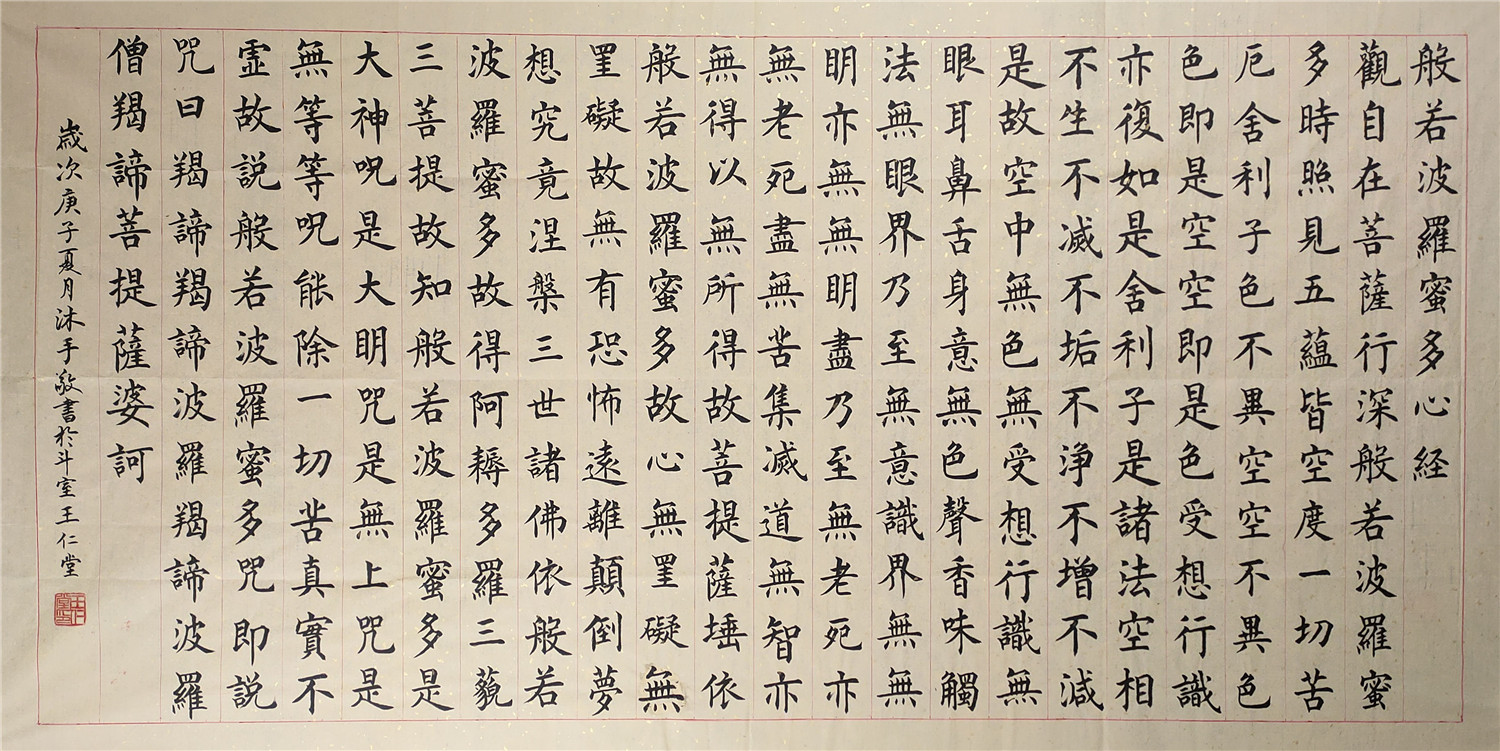 般若波羅蜜多心経
觀自在菩薩行深般若波羅蜜
多時照見五蘊皆空度一切苦
厄舍利子色不異空空不異色
色即是空空即是色受想行識
亦復如是舍利子是諸法空相
不生不滅不垢不淨不增不減
是故空中無色無受想行識無
眼耳鼻舌身意無色聲香味觸
法無眼界乃至無意識界無無
明亦無無明盡乃至無老死亦
無老死盡無苦集滅道無智亦
無得以無所得故菩提薩埵依
般若波羅蜜多故心無罣礙無
罣礙故無有恐怖遠離顛倒夢
想究竟涅槃三世諸佛依般若
波羅蜜多故得阿耨多羅三藐
三菩提故知般若波羅蜜多是
大神呪是大明咒是無上咒是
無等等呪能除一切苦真實不
虛故説般若波羅蜜多咒即説
咒曰羯諦羯諦波羅羯諦波羅
僧羯諦菩提薩婆訶
歲次庚子夏月沐手敬書於斗室王仁堂